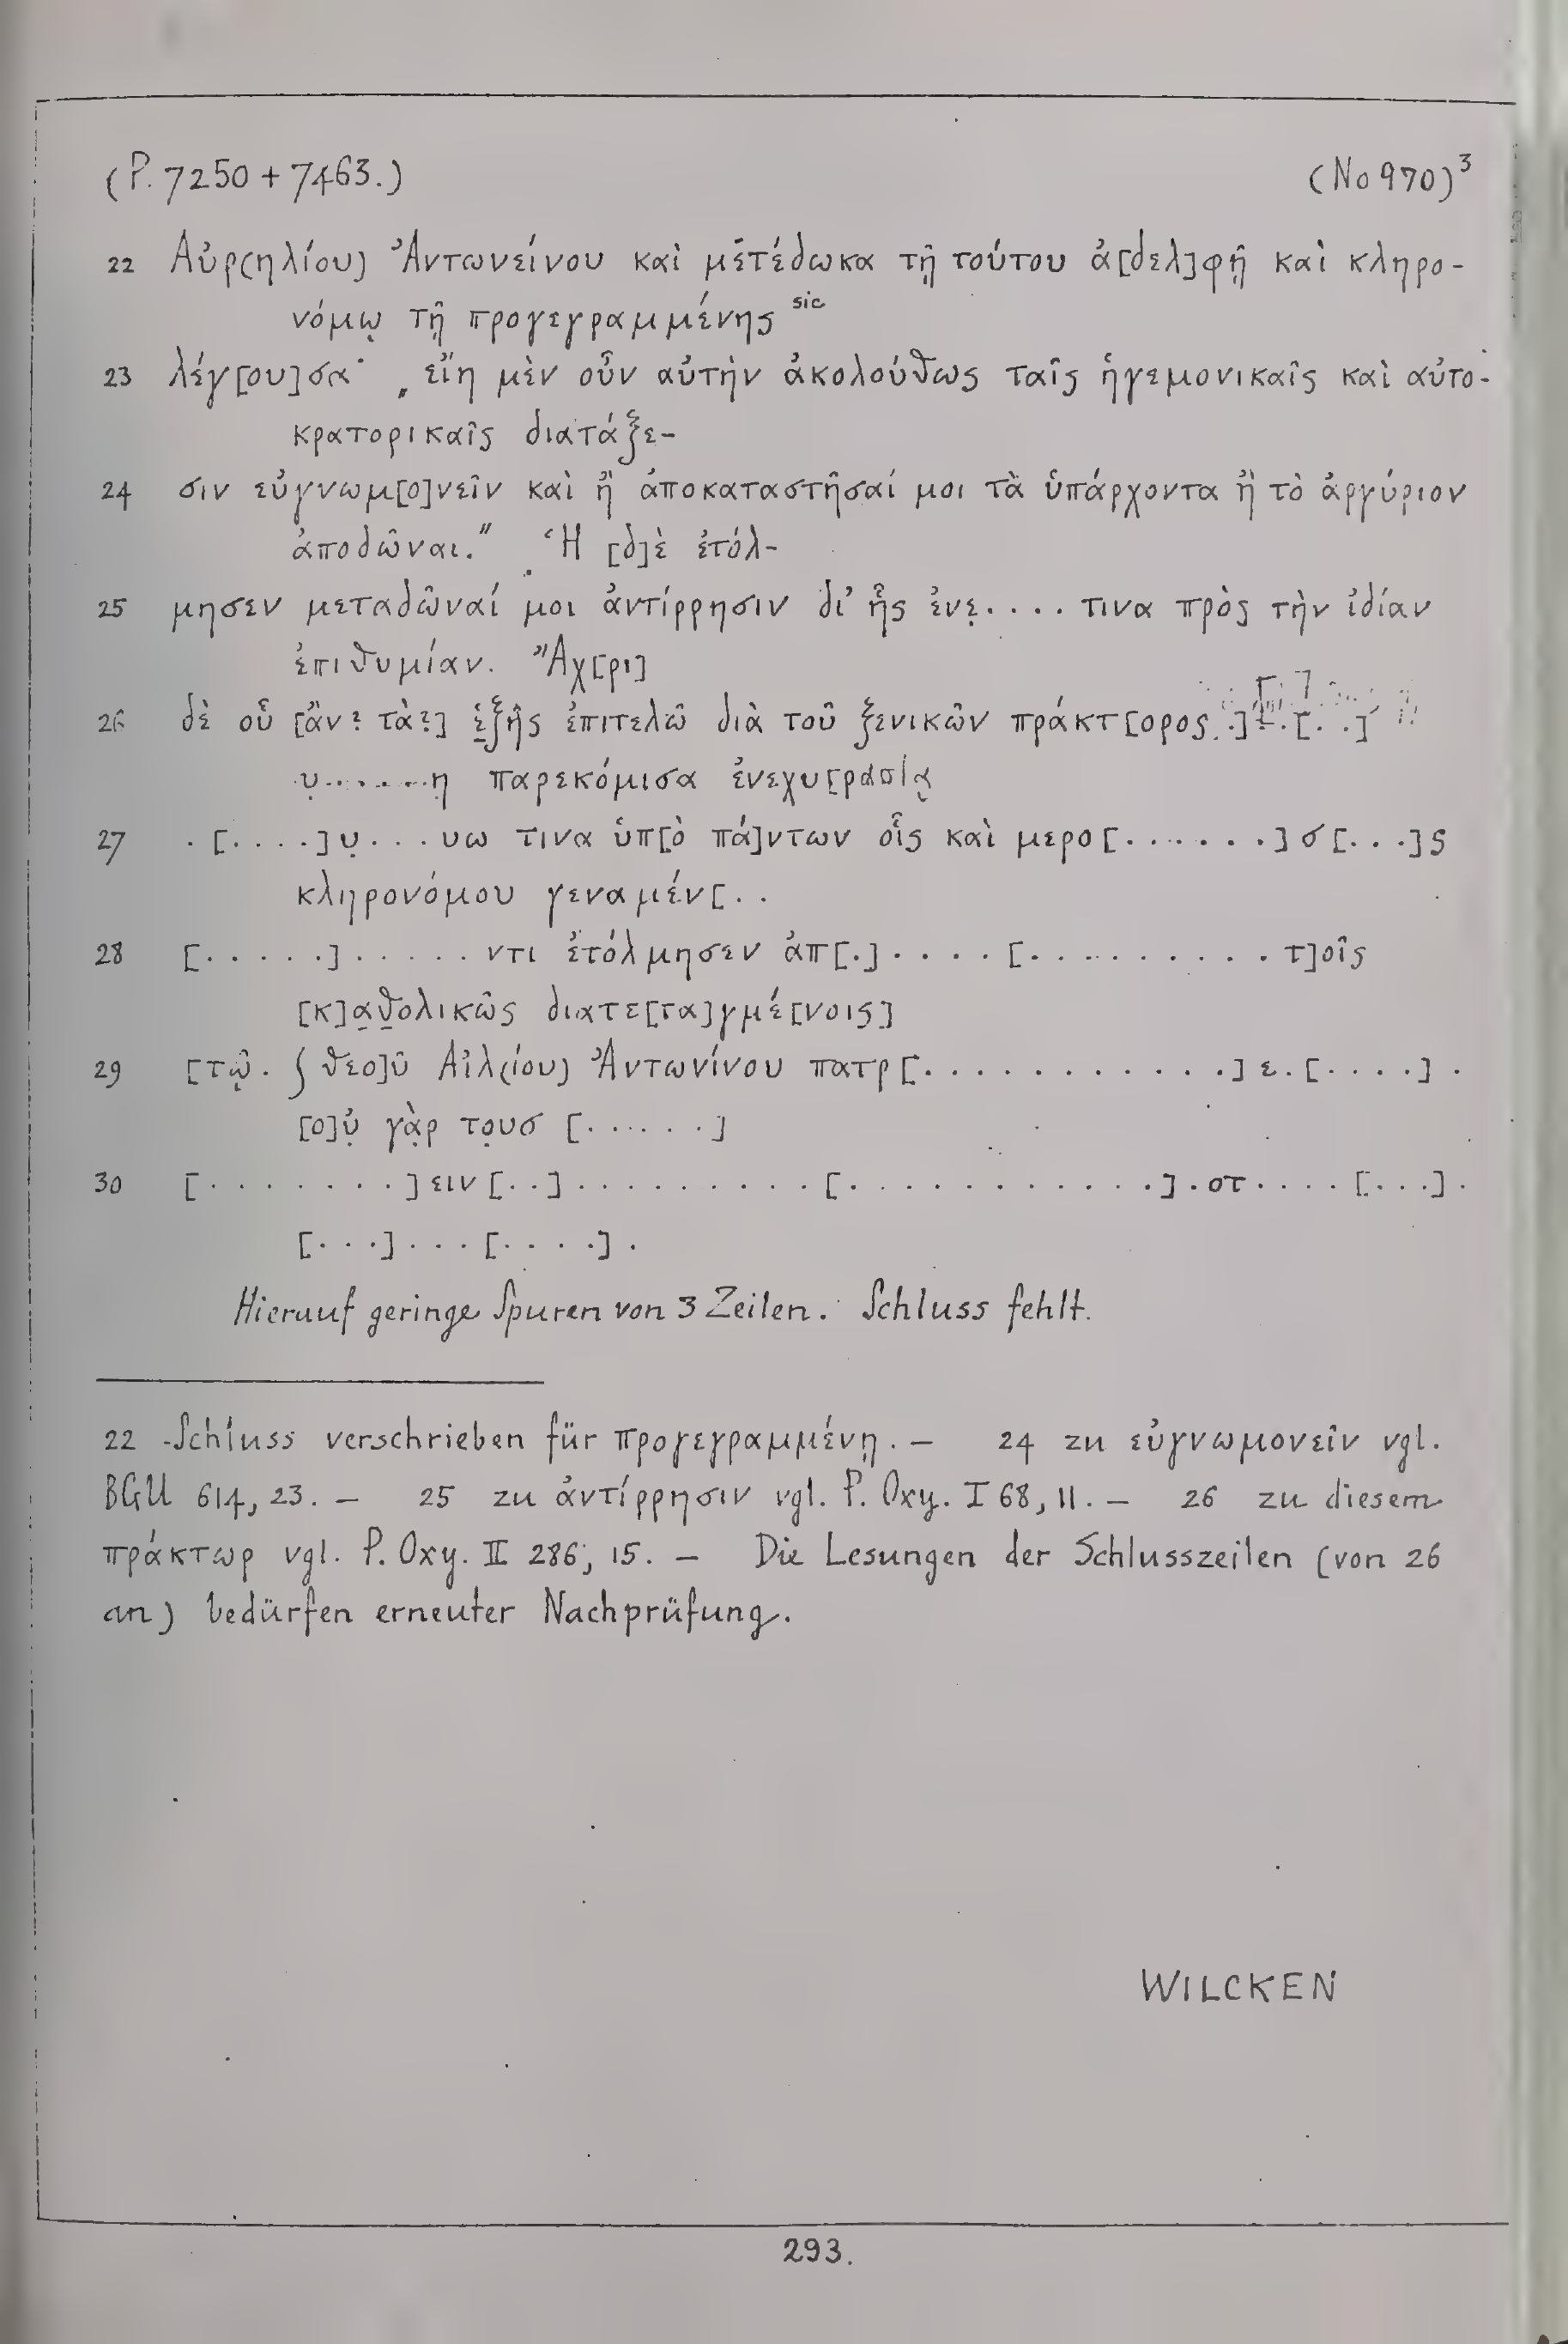 (P. 7250 + 7463.) (No 970)³
22 Αὐρ(ηλίου) Ἀντωνείνου καὶ μετέδωκα τῇ τούτου ἀ[δελ]φῇ καὶ κληρο-
νόμῳ τῇ προγεγραμμένης sic
23 λέγ[ου]σα· „εἴη μὲν οὖν αὐτὴν ἀκολούθως ταῖς ἡγεμονικαῖς καὶ αὐτο-
κρατορικαῖς διατάξε-
24 σιν εὐγνωμ[ο]νεῖν καὶ ἢ ἀποκαταστῆσαί μοι τὰ ὑπάρχοντα ἢ τὸ ἀργύριον
ἀποδῶναι.“ Ἡ [δ]ὲ ἐτόλ-
25 μησεν μεταδῶναί μοι ἀντίρρησιν δι’ ἧς ἐνε̣.... τινα πρὸς τὴν ἰδίαν
ἐπιθυμίαν. Ἄχ[ρι]
26 δὲ οὗ [ἂν? τὰ?] ἑ̣ξῆς ἐπιτελῶ διὰ τοῦ ξενικῶν πράκτ[ορος .]
υ̣.......η̣ παρεκόμισα ἐνεχυ[ρασίᾳ
27 .[....]υ̣...υω τινα ὑπ[ὸ πά]ντων οἷς καὶ μερο[.......]σ[...]ς
κληρονόμου γεναμέν[..
28 [.....].....ντι ἐτόλμησεν ἀπ[.]....[..........τ]οῖς
[κ]α̣θ̣ολικῶς διατε[τα]γμέ[νοις]
29 [τῷ. ∫ θεο]ῦ Αἰλ(ίου) Ἀντωνίνου πατρ[............]ε.[....].
[ο]ὐ̣ γὰ̣ρ το̣υσ [......]
30 [........]ειν[..]..........[............].οτ....[...].
[...]...[....].
Hierauf geringe Spuren von 3 Zeilen. Schluss fehlt.
22 Schluss verschrieben für προγεγραμμένῃ. — 24 zu εὐγνωμονεῖν vgl.
BGU 614, 23. — 25 zu ἀντίρρησιν vgl. P. Oxy. I 68, 11. — 26 zu diesem
πράκτωρ vgl. P. Oxy. II 286, 15. — Die Lesungen der Schlusszeilen (von 26
an) bedürfen erneuter Nachprüfung.
WILCKEN
293.